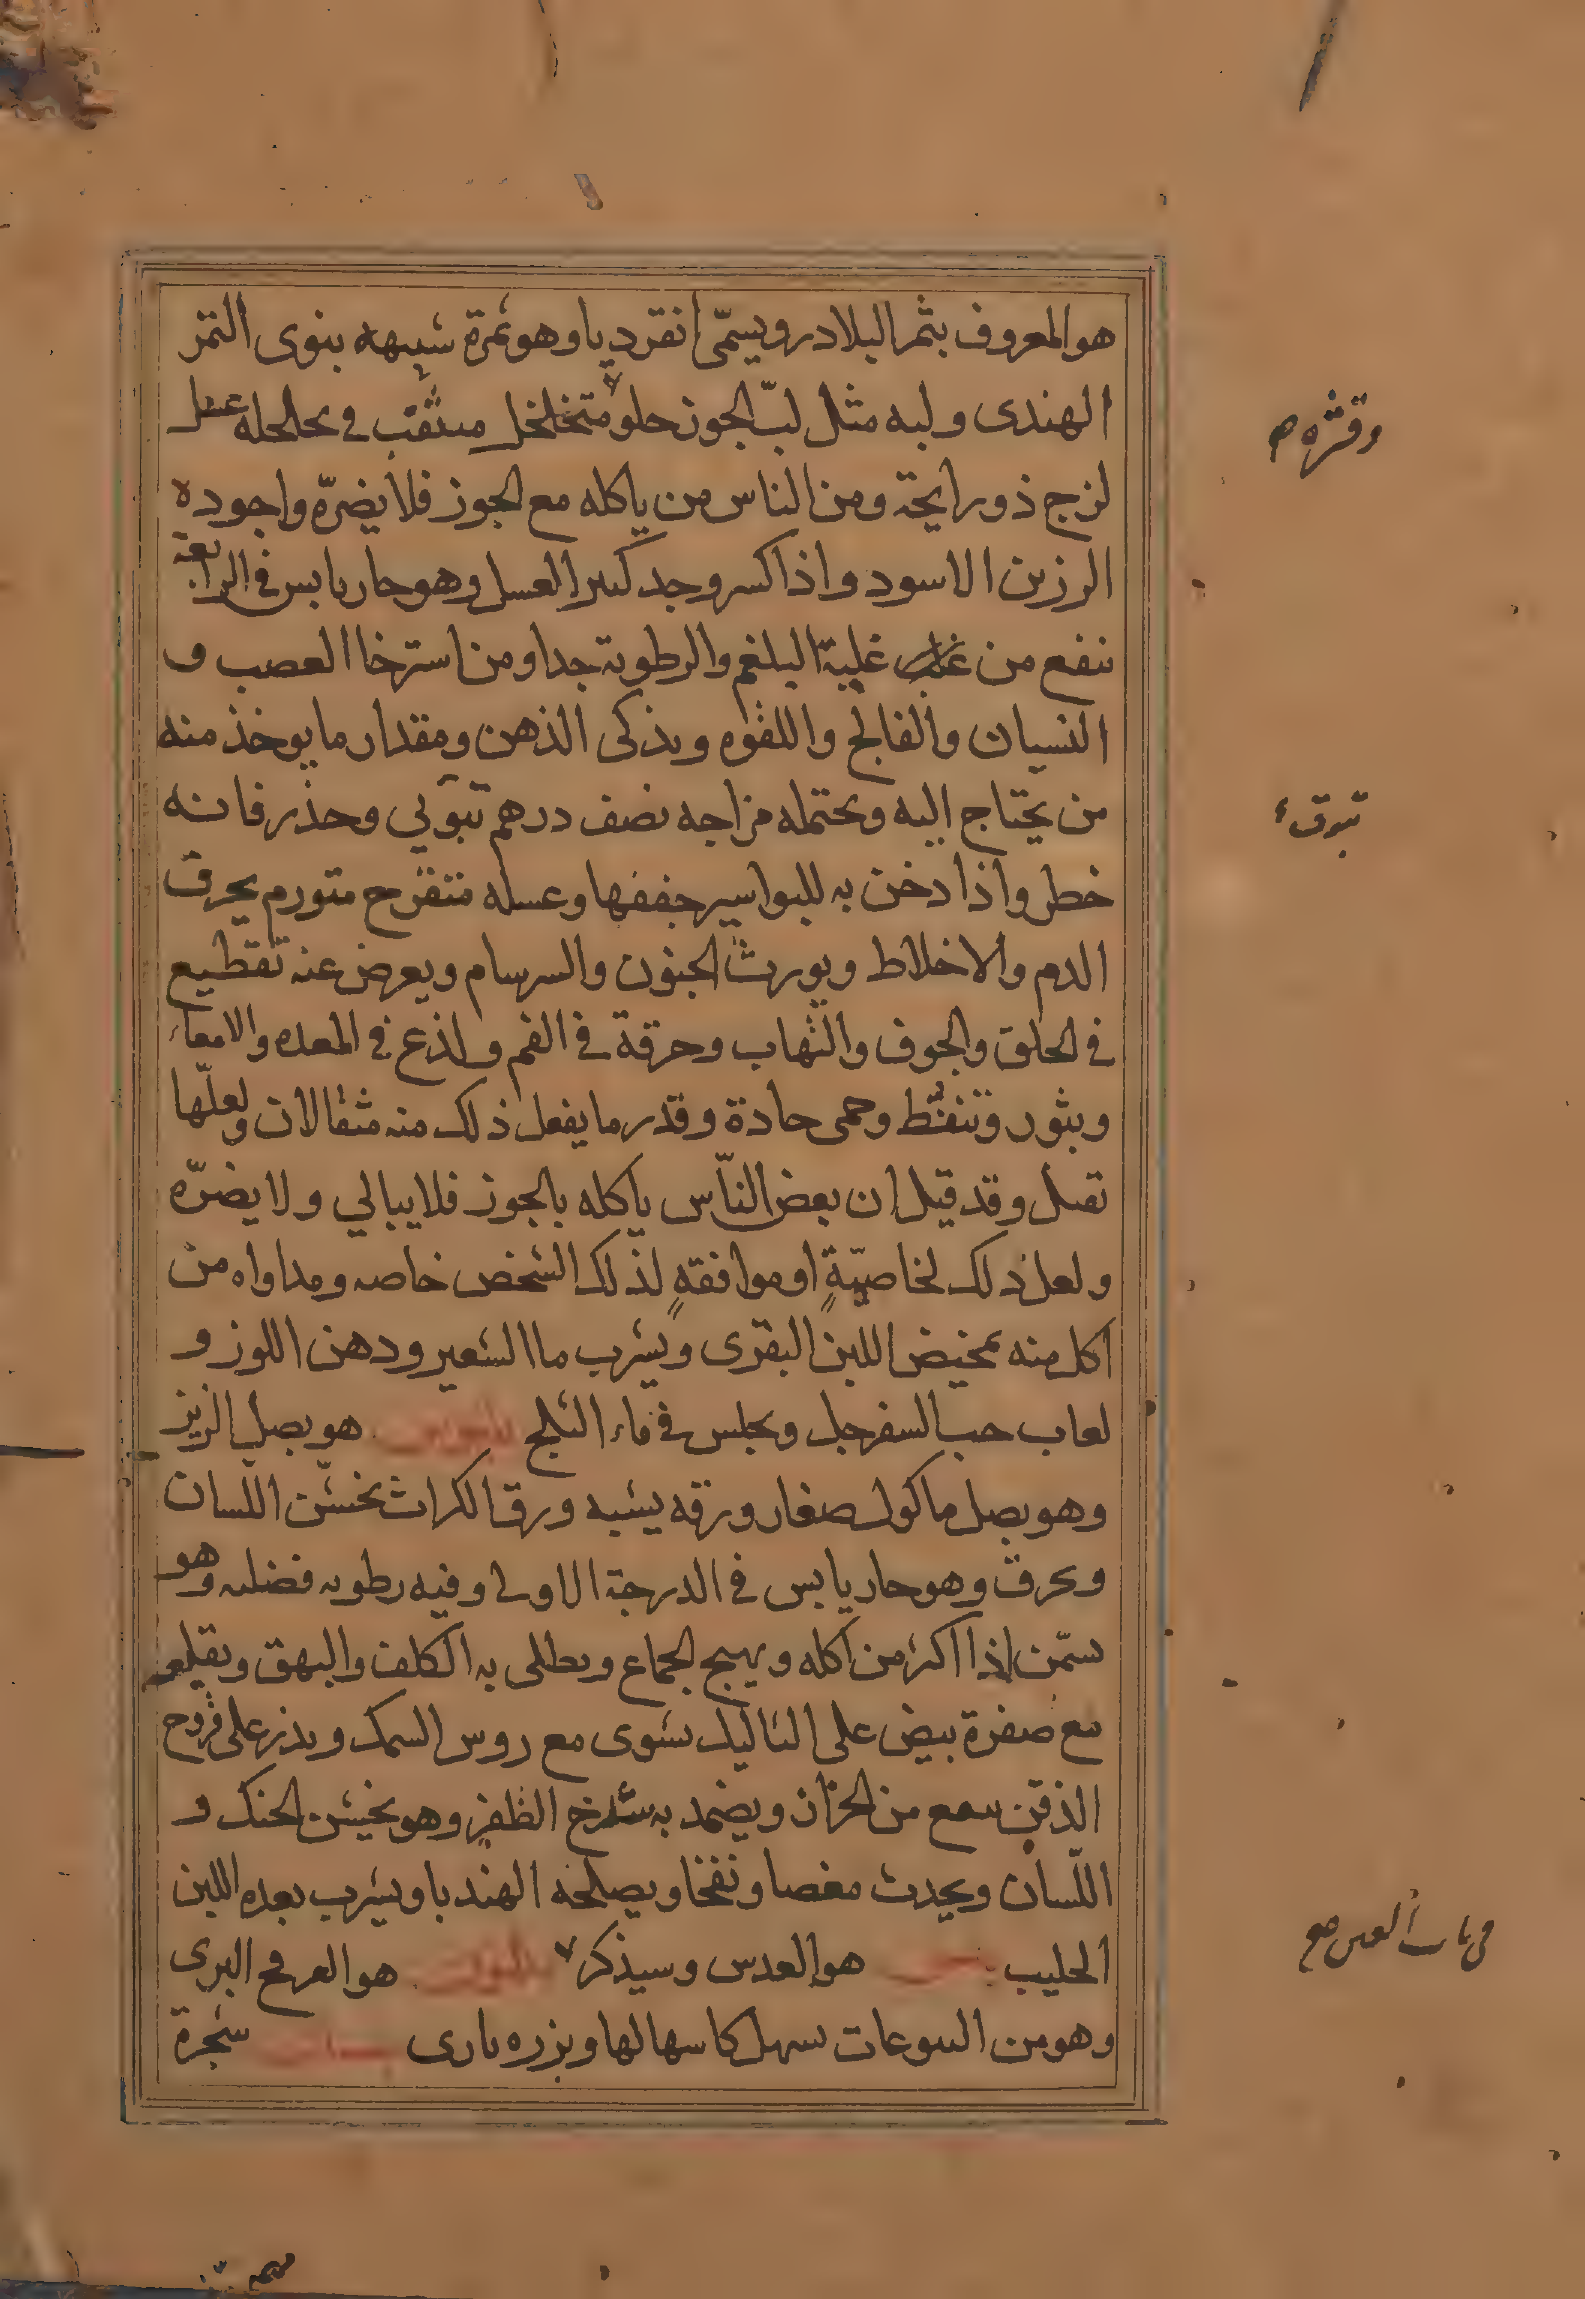 هو المعروف بثمر البلادر ويسمّى انقرديا وهو ثمرة شبيهه بنوى التمر
الهندى ولبه مثل لبّ الجوز حلو متخلخل متثقب فى تخلخله عسل
وقشره
لزج ذو رايحة ومن الناس من ياكله مع الجوز فلا يضرّه واجوده
الرزين الاسود واذا كسر وجد كثير العسل وهو حار يابس فى الرابعة
ينفع من غلبة البلغم والرطوبة جدا ومن استرخا العصب و
النسيان والفالج واللقوه ويذكى الذهن ومقدار ما يوخذ منه
من يحتاج اليه ويحتمله مزاجه نصف درهم بتوقي وحذر فانه
بتوقى
خطر واذا دخن به للبواسير جففها وعسله متقرح متورم يحرق
الدم والاخلاط ويورث الجنون والسرسام ويعرض عنه تقطيع
فى الحلق والجوف والتهاب وحرقة فى الفم ولذع فى المعده والامعاء
وبثور وتنفّط وحمى حادة وقدر ما يفعل ذلك منه مثقالان ولعلّها
تقتل وقد قيل ان بعض النّاس ياكله بالجوز فلا يبالي ولا يضرّه
ولعل ذلك لخاصيّةٍ او موافقهٍ لذلك الشخص خاصه ومداواه من
اكل منه بمخيض اللبن البقرى ويشرب ما الشعير ودهن اللوز و
لعاب حب السفرجل ويجلس فى ماء الثلج بلبوس هو بصل الزيز
وهو بصل ماكول صغار ورقه يشبه ورق الكراث يخشن اللسان
ويحرق وهو حار يابس فى الدرجة الاولى وفيه رطوبه فضليه وهو
يسمّن اذا اكثر من اكله ويهيج الجماع ويطلى به الكلف والبهق ويقلع
مع صفرة بيض على الثاليل يشوى مع روس السمك ويذر على قروح
الذقن ينفع من الحزاز ويضمد به شدخ الظفر وهو يخشن الحنك و
اللّسان ويحدث مغصا ونفخا ويصلحه الهندبا ويشرب بعده اللبن
الحليب بلسن هو العدس وسيذكر هو العرفج البرى
فى باب العين صح
وهو من اليتوعات يسهل كاسهالها وبزره نارى شجرة